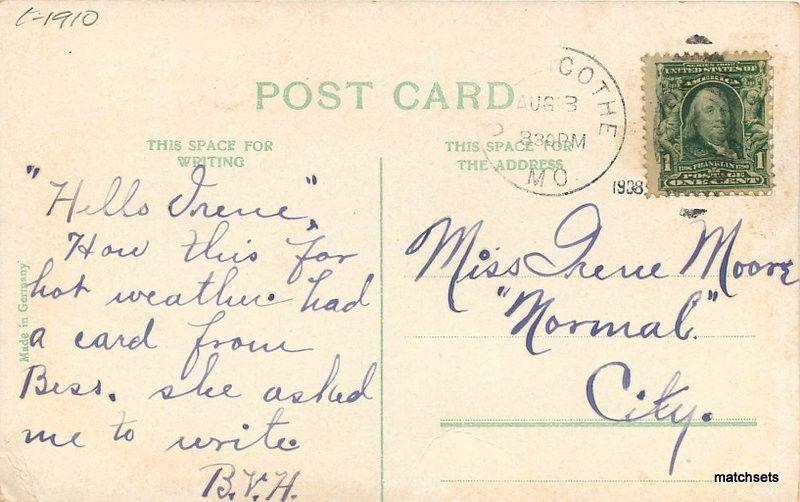 c-1910
POST CARD
THIS SPACE FOR
WRITING
THIS SPACE FOR
THE ADDRESS
COTHE
AUG 3
830PM
MO.
1908
SERIES 1902
UNITED STATES OF
AMERICA
1 FRANKLIN 1
POSTAGE
ONE CENT
"Hello Irene",
How this for
hot weather. had
a card from
Bess. she asked
me to write.
B.V.H.
Miss Irene Moore
"Normal."
City.
Made in Germany
matchsets